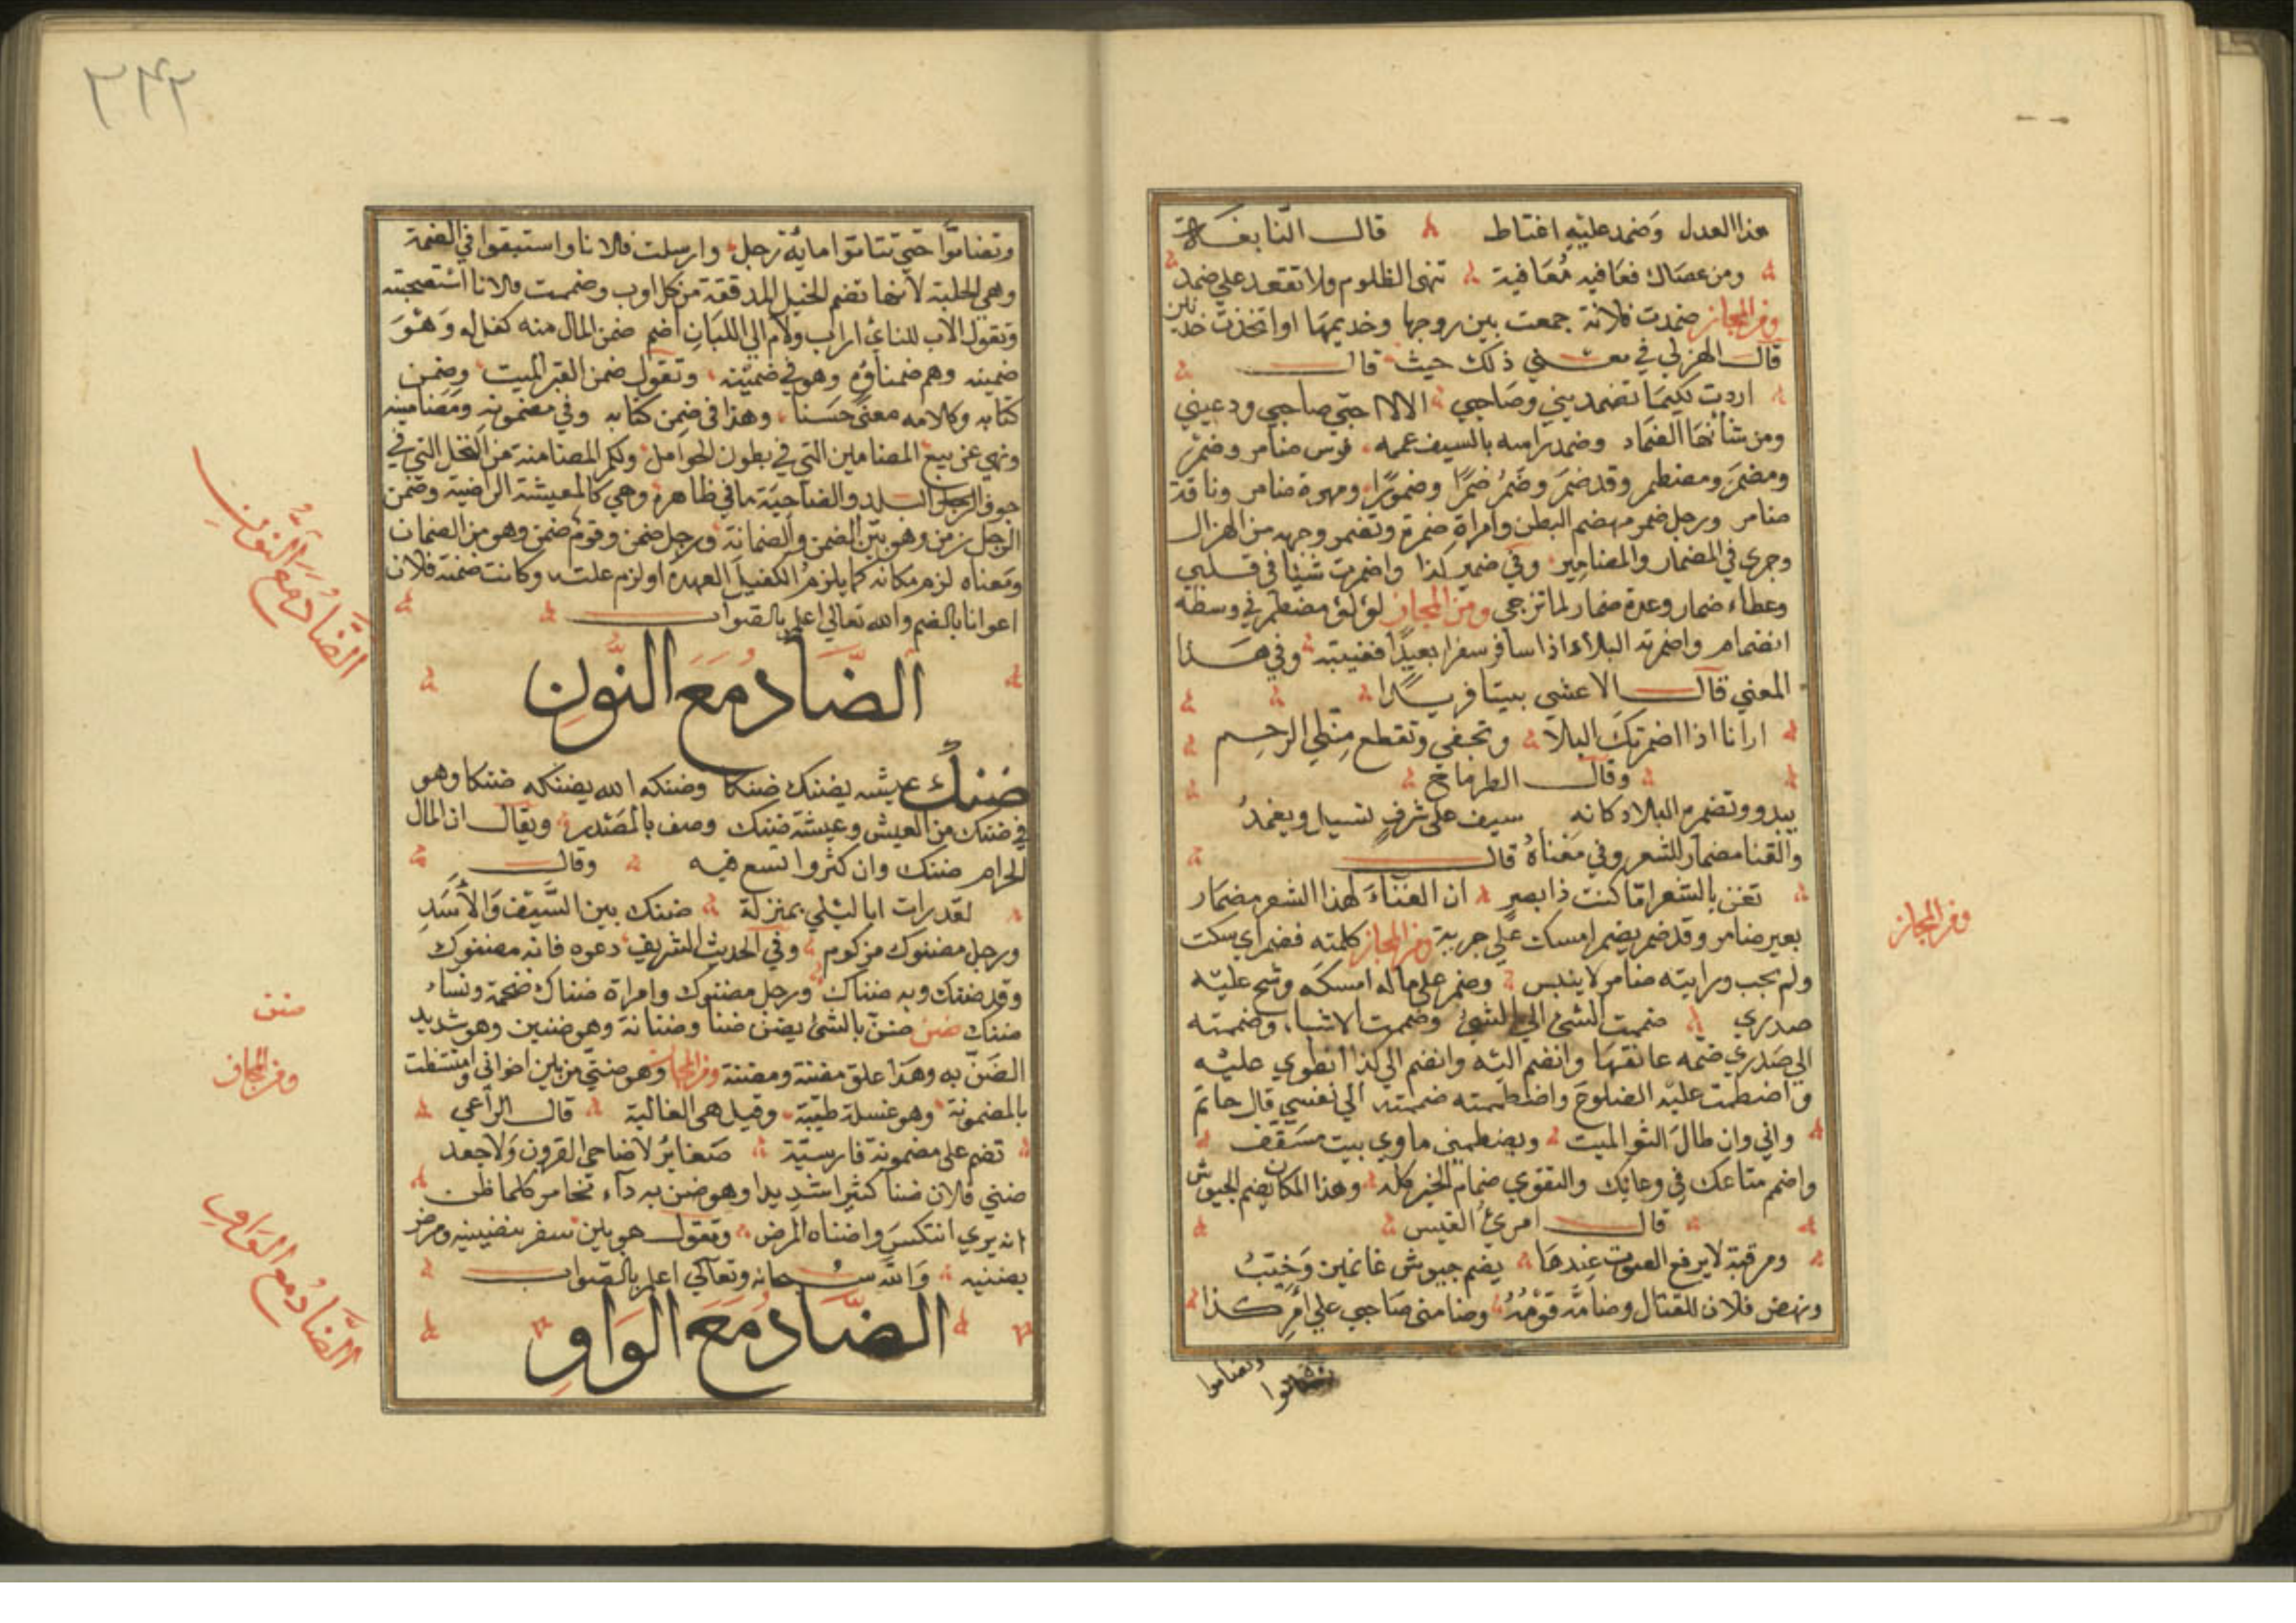 هذا العدل وضمد عليه اغتاط قال النابغة
ومن عصاك فعاقبه معاقبة تنهى الظلوم ولا تقعد على ضمد
ومن المجاز ضمدت فلانة جمعت بين زوجها وخديمها او اتخذت خدنين
قال الهزلي في معنى ذلك حيث قال
اردت لكيما تضمديني وصاحبي الا لا احبي صاحبي ودعيني
ومن شأنها الضماد وضمد راسه بالسيف عممه فرس ضامر وضمر
ومضمر ومضطمر وقد ضمر وضمر ضمرا وضمورا ومهرة ضامر وناقة
ضامر ورجل ضمر مهضم البطن وامراة ضمرة وتضمر وجهه من الهزال
وجرى في المضمار والمضامير وفي ضميري كذا واضمرت شيئا في قلبي
وعطاء ضمار وعدة ضمار لما ترجى ومن المجاز لؤلؤ مضطمر في وسطه
انضمام واضمرته البلاد اذا سافر سفرا بعيدا فغيبته وفي هذا
المعني قال الاعشى بيتا فريدا
ارانا اذا اضمرتك البلاد وتجفى وتقطع منا الرحم
وقال الطرماح
يبدو وتضمره البلاد كانه سيف على شرف تسيل ويغمد
والغنا مضمار للشعر وفي معناه قال
تغن بالشعر اما كنت ذا بصر ان الغناء لهذا الشعر مضمار
بعير ضامر وقد ضمر يضمر امسك على جربة ومن المجاز كلمته فضمر اي سكت
ولم يجب ورايته ضامر لا ينبس وضمر على ماله امسكه وشح عليه
صدري ضممت الشئ الى الشئ وضممت الاشياء وضممته
الى صدري ضمه عانقها وانضم اليه وانضم الى كذا انطوي عليه
واضطمت عليه الضلوع واضطممته ضممته الى نفسي قال حاتم
واني وان طال الثوا لميت ويضطمني ماوي بيت مسقف
واضمم متاعك في وعائك والتقوي ضمام الخير كله وهذا المكان يضم الجيوش
قال امرئ القيس
ومرقبة لا يرفع الصوت عندها يضم جيوش غانمين وخيب
ونهض فلان للقتال وضامه قومه وضامنى صاحبي على امر كذا
وتضاموا
وتضاموا حتى تتاموا مائة رجل وارسلت فلانا واستبقوا في الضمة
وهي الحلبة لانها تضم الخيل المدققة من كل اوب وضممت فلانا استصحبته
وتقول الاب للنائي اراب ولام الى اللبان اضم ضمن المال منه كفل له وهو
ضمينه وهم ضمناؤه وهو في ضمينه وتقول ضمن القبر الميت وضمن
كتابه وكلامه معنى حسنا وهذا في ضمن كتابه وفي مضمونه ومضامينه
ونهي عن بيع المضامين التي في بطون الحوامل ولكم الضامنة من النخل التي في
جوف البلد والضاحية ما في ظاهره وهي كالمعيشة الراضية وضمن
الرجل زمن وهو بين الضمن والضمانة ورجل ضمن وقوم ضمن وهو من الضمان
ومعناه لزم مكانه كما يلزم الكفيل العهدة او لزم علته وكانت ضمنة فلان
اعوانا بالضم والله تعالى اعلم بالصواب
الضاد مع النون
ضنك عيشه يضنك ضنكا وضنكه الله يضنكه ضنكا وهو
في ضنك من العيش وعيشة ضنك وصف بالمصدر ويقال ان المال
الحرام ضنك وان كثر واتسع فيه وقال
لقد رات ابا ليلي بمنزلة ضنك بين السيف والاسد
ورجل مضنوك مزكوم وفي الحديث الشريف دعوه فانه مضنوك
وقد ضنك وبه ضناك ورجل مضنوك وامراة ضناك ضخمة ونساء
ضنك ضنن ضنن بالشئ يضن ضنا وضنانة وهو ضنين وهو شديد
الضن به وهذا علق مضنة ومضنة ومن المجاز وهو ضنتي من بين اخواني وامتشطت
بالمضمونة وهو غسلة طيبة وقيل هي الغالية قال الراعي
تضم على مضمونة فارسية ضغاير لا ضاحى القرون ولا جعد
ضني فلان ضنا كثيرا شديدا وهو ضن به داء تخامر كلما ظن
انه يري انتكس واضناه المرض وتقول هو بين سفر ينضيه ومرض
يضنيه والله سبحانه وتعالى اعلم بالصواب
الضاد مع الواو
ومن المجاز
الضاد مع النون
ضنن
ومن المجاز
الضاد مع الواو